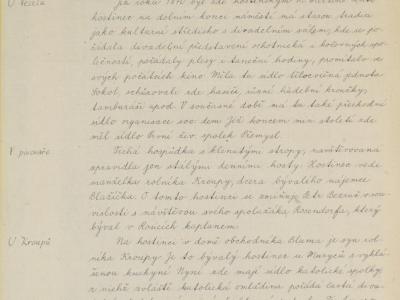 U Vesela
Do roku 1870 byl zde hostinským
hostinec na dolním konci náměstí má starou tradici
jako kulturní středisko s divadelním sálem, kde se po-
řádala divadelní představení ochotnická i kočovných spo-
lečností, pořádaly plesy i taneční hodiny, promítalo ve
svých počátcích kino Míla tu sídlo tělocvičná jednota
Sokol, scházivali zde hasiči, různé hudební kroužky,
tamburáši apod. V současné době má tu také přechodní
sídlo organisace 100 dem Již koncem min století zde
měl sídlo brně. živ. spolek Přemysl.
V
Tichá hospůdka s klenutými stropy, navštěvovaná
zpravidla jen stálými denními hosty. Hostinec vede
manželka rolníka Kroupy, dcera bývalého nájemce
Blažíčka. O tomto hostinci se zmiňuje Petr Bezruč v sou-
vislosti s návštěvou svého spolužáka Rosendorfa, který
býval v kaplanem.
U Kroupů
Na hostinci v domě obchodníka Bluma je syn rol-
níka Kroupy Je to bývalý hostinec u s vykla-
kuchyní Nyní zde mají sídlo katolické spolky,
z nichž zvláště katolická omladina pořádá častá diva-